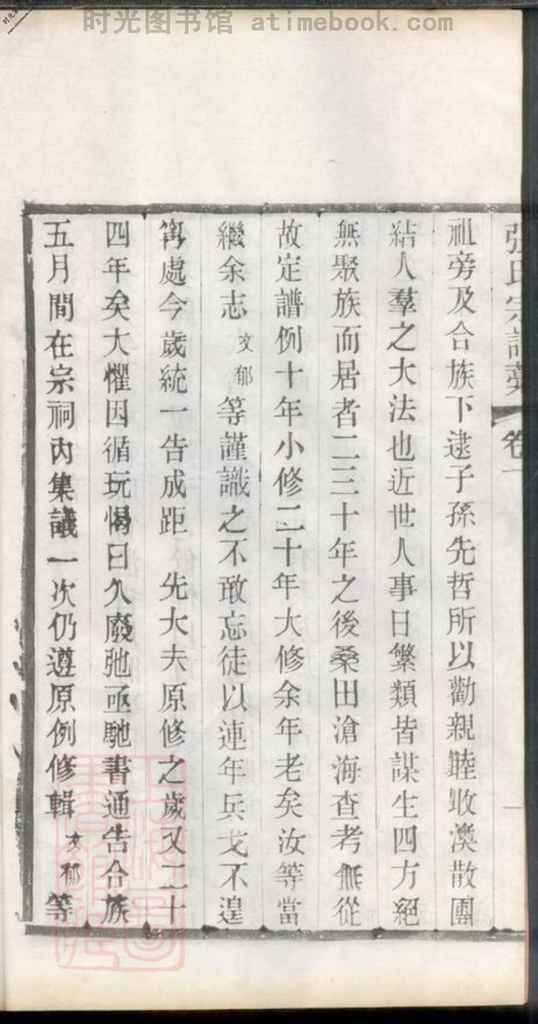 时光图书馆 atimebook.com
張氏宗譜 卷一
祖旁及合族下逮子孫先哲所以勸親睦收渙散團
結人羣之大法也近世人事日繁類皆謀生四方絕
無聚族而居者二三十年之後桑田滄海查考無從
故定譜例十年小修二十年大修余年老矣汝等當
繼余志文郁等謹識之不敢忘徒以連年兵戈不遑
寧處今歲統一告成距 先大夫原修之歲又二十
四年矣大懼因循玩愒日久廢弛亟馳書通告合族
五月間在宗祠內集議一次仍遵原例修輯文郁等